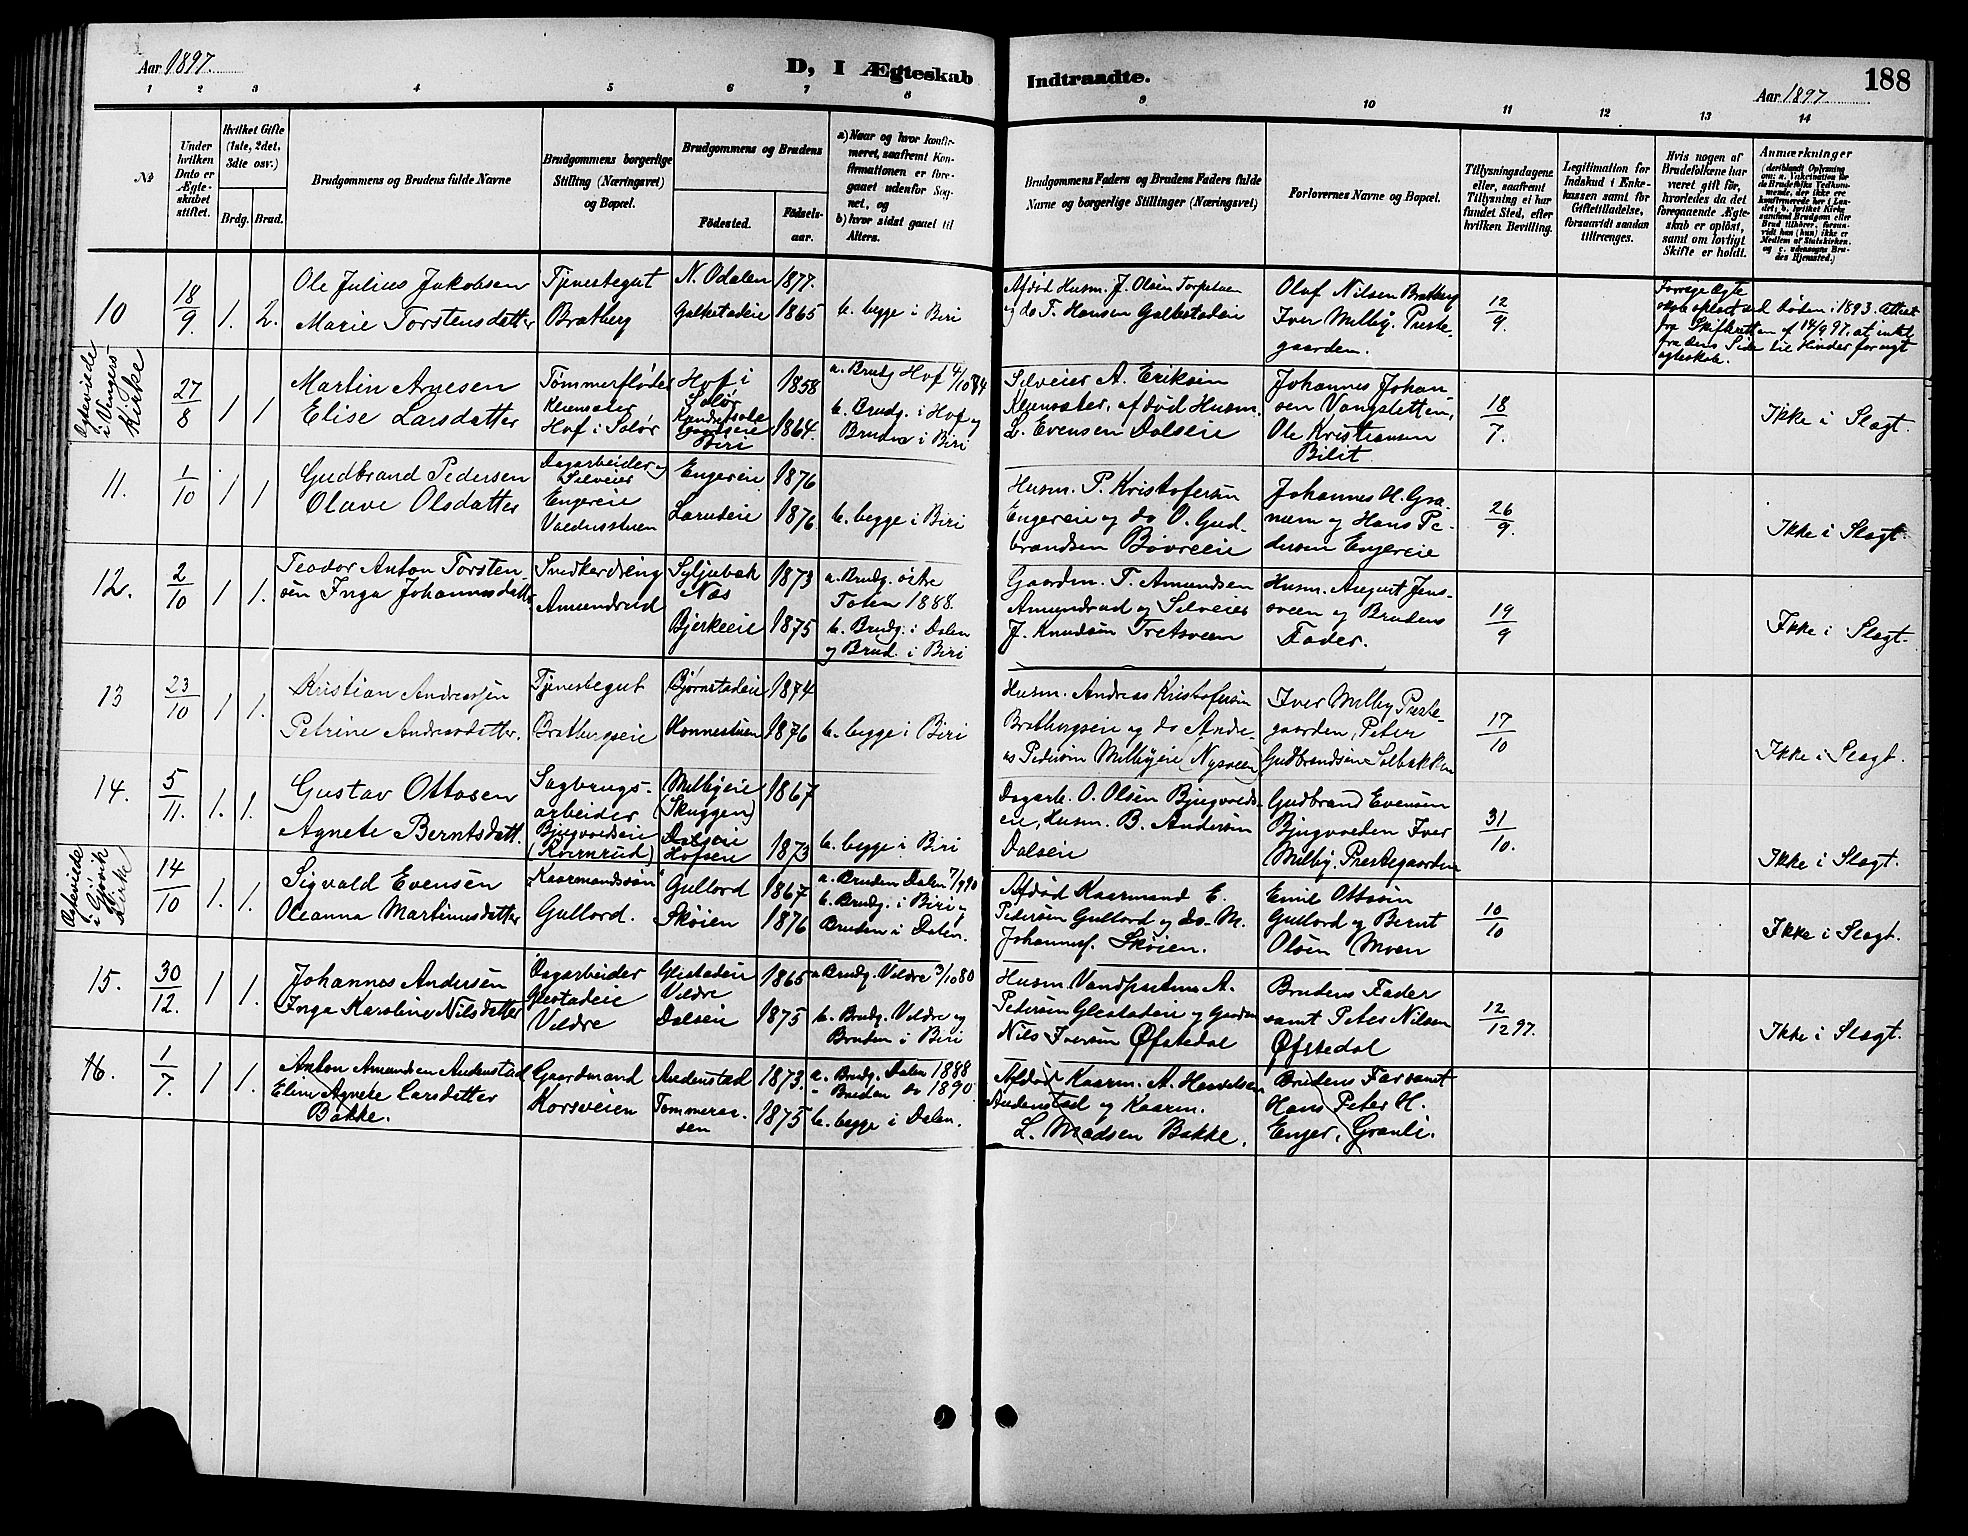 Aar 1897.
D, I Ægteskab
Indtraadte.
188
Aar 1897
1 2 3 4 5 6 7 8
9 10 11 12 13 14
№
Under hvilken Dato er Ægteskabet stiftet.
Hvilket Gifte (1ste, 2det, 3die osv.)
Brdg. Brud.
Brudgommens og Brudens fulde Navne
Brudgommens borgerlige Stilling (Næringsvei) og Bopæl.
Brudgommens og Brudens
Födested.
Födsels-aar.
a) Naar og hvor konfirmeret, saafremt Konfirmationen er foregaaet udenfor Sognet, og
b) hvor sidst gaaet til Alters.
Brudgommens Faders og Brudens Faders fulde Navne og borgerlige Stillinger (Næringsvei)
Forlovernes Navne og Bopæl.
Tillysningsdagene eller, saafremt Tillysning ei har fundet Sted, efter hvilken Bevilling.
Legitimation for Indskud i Enkekassen samt for Giftetilladelse, forsaavidt saadan tiltrænges.
Hvis nogen af Brudefolkene har været gift før, hvorledes da det foregaaende Ægteskab er opløst, samt om lovligt Skifte er holdt.
Anmærkninger
10
18/9
1. 2.
Ole Julius Jakobsen
Marie Torstensdatter
Tjenestegut
Bratberg
N. Odalen 1877.
Galkestadeie 1865
b. begge i Biri
Afdød Husm. J. Olsen Torpstuen
og do T. Hansen Galkestadeie
Olaf Nilsen Bratberg
Iver Milby, Preste-
gaarden.
12/9.
Forrige Ægte
skab opløst ved døden i 1893. Attest
fra Skifteretten af 14/9 97, at intet
fra dens Side til Hinder for nyt
ægteskab.
Ægteviede
i Vingers
Kirke
27/8
1 1
Martin Arnesen
Elise Larsdatter
Tømmerfløder
Kleensæter
Hof i Solør
Hof i
Solør
1858
1864.
Biri
a. Brudg Hof 4/10 84
b. Brudg. i Hof og
Bruden i Biri
Selveier A. Eriksen
Kleensæter, afdød Husm.
L. Evensen Dalseie
Johannes Johan-
sen Vangsletten,
Ole Kristiansen
Bilit.
18/7.
Ikke i Slægt.
11.
1/10
1 1
Gudbrand Pedersen
Olave Olsdatter
Dagarbeider og
Selveier
Engereie
Valdersstuen
Engereie 1876
Larudeie 1876.
b. begge i Biri
Husm. P. Kristofersen
Engereie og do O. Gud-
brandsen Bøvreeie
Johannes H. Gra-
num og Hans Pe-
dersen Engereie
26/9.
Ikke i Slægt
12.
2/10
1 1.
Teodor Anton Torsten-
sen Inga Johannesdatter
Snedkerdreng
Amundrud
Syljubak
Næs
1873
Bjerkeeie 1875
a. Brudg. østre
Toten 1888.
b. Brudg. i Dalen
og Brud. i Biri
Gaardm. T. Amundsen
Amundrud og Selveier
J. Knudsen Tretsveen
Husm. August Jens-
sveen og Brudens
Fader.
19/9
Ikke i Slægt.
13
23/10
1 1.
Kristian Andreassen
Petrine Andreasdatter.
Tjenestegut
Bratbergseie
Bjørnstadeie 1874
Honnestuen 1876
b. begge i Biri
Husm. Andreas Kristofersen
Bratbergseie og do Andre-
as Pedersen Milbyeie (Nysveen)
Iver Milby Preste-
gaarden, Peter
Gudbrandsen Solbakken
17/10
Ikke i Slægt.
14.
5/11.
1. 1.
Gustav Ottosen
Agnete Berntsdatt.
Sagbrugs-
arbeider
Bjugvoldseie
(Kvernrud)
Milbyeie
(Skuggen)
Dalseie
Hofseie
1867
1873
b. begge i Biri
Dagarb. O. Olsen Bjugvolds-
eie, Husm. B. Andersen
Dalseie
Gudbrand Evensen
Bjugvolden Iver
Milby. Prestegaarden
31/10.
Ikke i Slægt.
Ægteviede
i Gjøvik
Kirke
14/10
1. 1.
Sigvald Evensen
Oleanna Martinusdatter
"Kaarmandssøn"
Gullord.
Gullord 1867
Skøien 1876
a. Bruden Dalen 7/9 90
b. Brudg. i Biri og
Bruden i Dalen.
Afdød Kaarmand E.
Pedersen Gullord og do M.
Johannesf. Skøien.
Emil Ottosen
Gullord og Bernt
Olsen Moen
10/10
Ikke i Slægt.
15.
30/12.
1 1.
Johannes Andersen
Inga Karoline Nilsdatter
Dagarbeider
Glestadeie
Veldre
Glestadeie
Veldre
Dalseie
1865
1875
a Brudg. Veldre 3/10 80
b. Brudg. Veldre og
Bruden i Biri
Husm. A.
Pedersen Glestadeie og Gaardm
Nils Iversen Øfstedal
Brudens Fader
samt Peter Nilsen
Øfstedal
12/12 97.
Ikke i Slægt.
16.
1/7.
1 1.
Anton Amundsen Audenstad
Elise Agnete Larsdatter
Bakke.
Gaardmand
Korsveien
Audenstad 1873.
Tommeraa-
sen
1875
a. Brudg. Dalen 1888
" Bruden do 1890
b. begge i Dalen.
Afdød Kaarm. A. Hovelsen
Audenstad og Kaarm.
L. Madsen Bakke.
Brudens Far samt
Hans Peter H.
Enger, Granli.